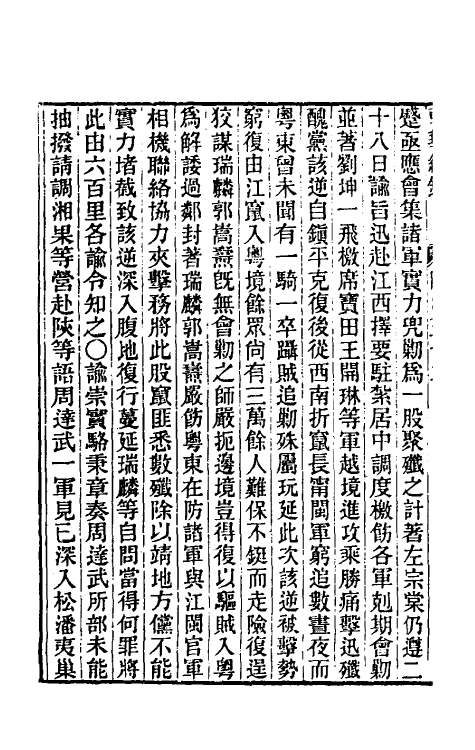 蹙亟應會集諸軍實力兜勦爲一股聚殲之計著左宗棠仍遵二
十八日諭旨迅赴江西擇要駐紮居中調度檄飭各軍剋期會勦
並著劉坤一飛檄席寶田王開琳等軍越境進攻乘勝痛擊迅殲
醜黨該逆自鎭平克復後從西南折竄長甯閩軍窮追數晝夜而
粵東曾未聞有一騎一卒躡賊追勦殊屬玩延此次該逆被擊勢
窮復由江竄入粵境餘眾尙有三萬餘人難保不鋌而走險復逞
狡謀瑞麟郭嵩燾旣無會勦之師嚴扼邊境豈得復以驅賊入粵
爲解諉過鄰封著瑞麟郭嵩燾嚴飭粵東在防諸軍與江閩官軍
相機聯絡協力夾擊務將此股竄匪悉數殲除以靖地方儻不能
實力堵截致該逆深入腹地復行蔓延瑞麟等自問當得何罪將
此由六百里各諭令知之〇諭崇實駱秉章奏周達武所部未能
抽撥請調湘果等營赴陝等語周達武一軍見已深入松潘夷巢